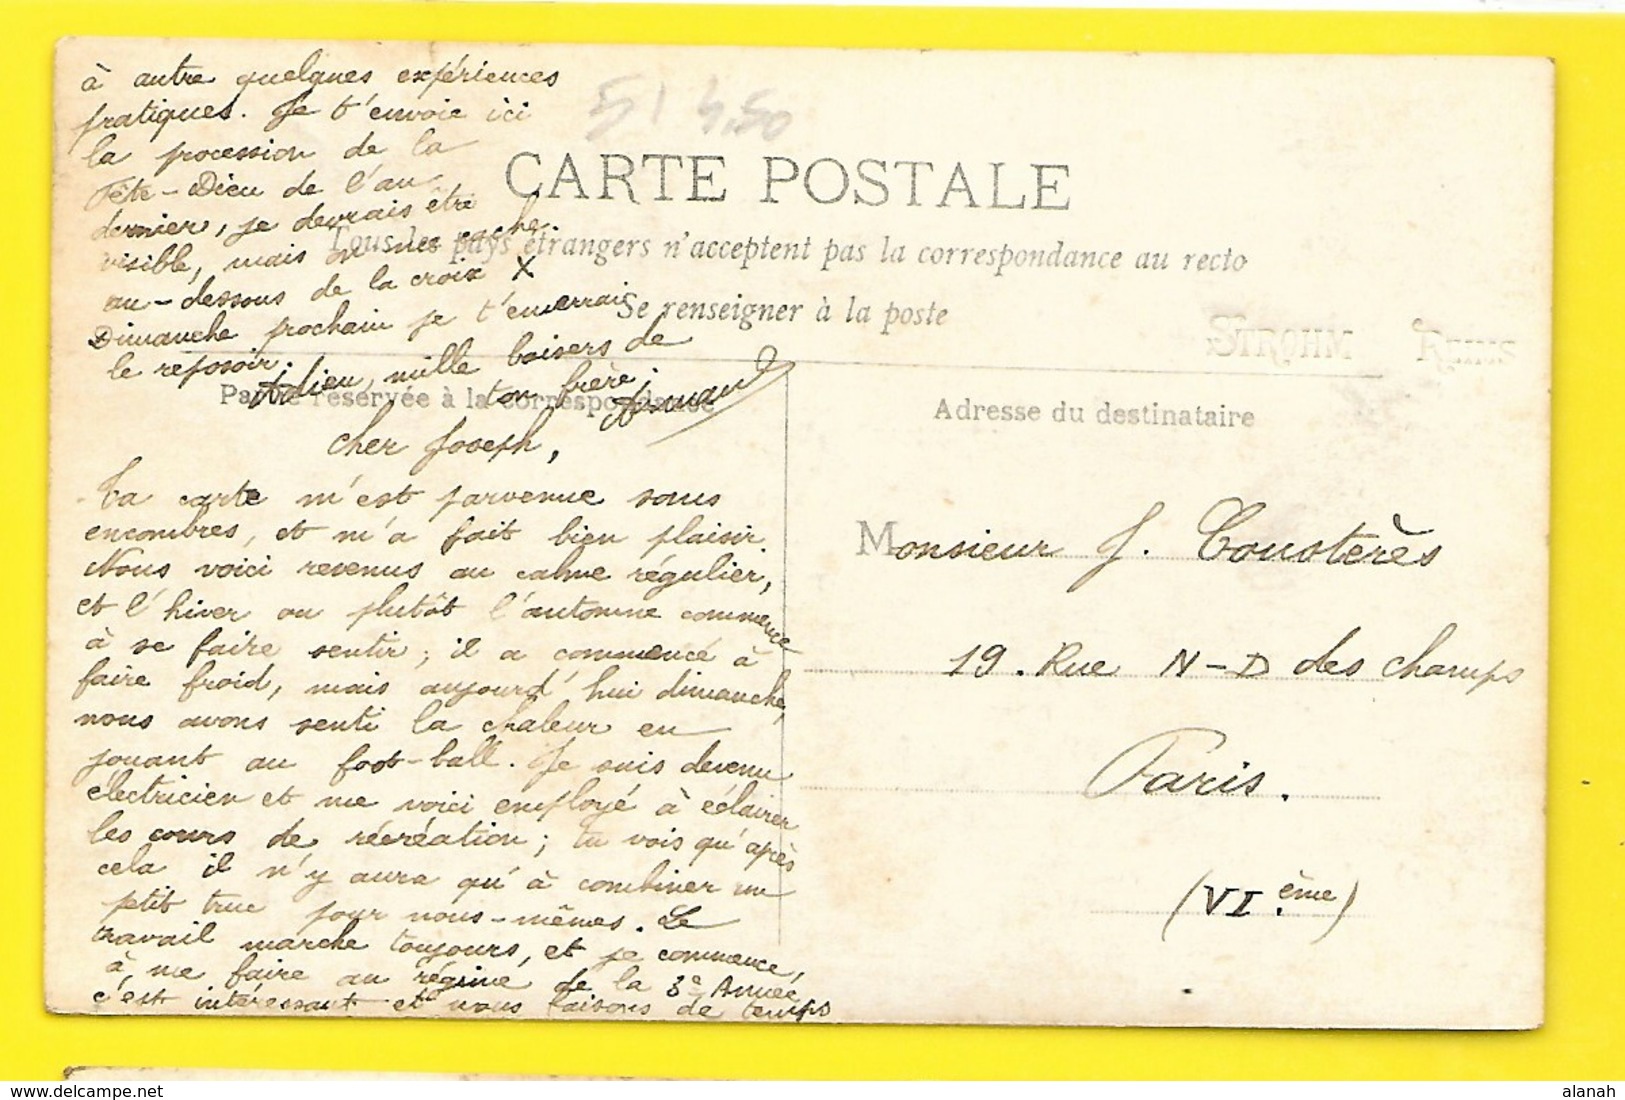 à autre quelques expériences
pratiques. Je t'envoie ici
la procession de la
Fête-Dieu de l'an
dernier, je devrais être
visible, mais on me cache
au-dessous de la croix X
Dimanche prochain je t'enverrai
le reposoir.
Adieu, mille baisers de
ton frère.
51 4,50
CARTE POSTALE
Tous les pays étrangers n'acceptent pas la correspondance au recto
Se renseigner à la poste
STROHM REIMS
Partie réservée à la correspondance
Adresse du destinataire
cher Joseph,
Ta carte m'est parvenue sans
encombres, et m'a fait bien plaisir.
Nous voici revenus au calme régulier,
et l'hiver ou plutôt l'automne commence
à se faire sentir; il a commencé à
faire froid, mais aujourd'hui dimanche,
nous avons senti la chaleur en
jouant au foot-ball. Je suis devenu
électricien et me voici employé à éclairer
les cours de récréation; tu vois qu'après
cela il n'y aura qu'à combiner un
petit truc pour nous-mêmes. Le
travail marche toujours, et je commence,
à me faire au régime de la 3e Année
c'est intéressant et nous faisons de temps
Monsieur J. Cousterès
19. Rue N-D des champs
Paris.
(VI.ème)
alanah